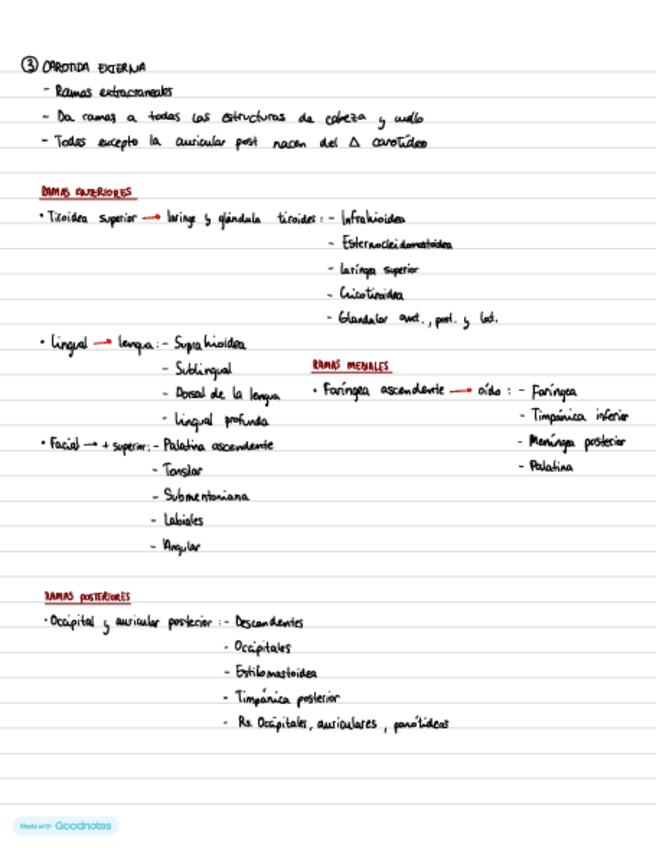 ③ CAROTIDA EXTERNA
- Ramas extracraneales
- Da ramas a todas las estructuras de cabeza y cuello
- Todas excepto la auricular post nacen del Δ carotídeo
RAMAS ANTERIORES
• Tiroidea superior → laringe y glándula tiroides: - Infrahioidea
- Esternocleidomastoidea
- Laríngea superior
- Cricotiroidea
- Glandular ant., post. y lat.
• Lingual → lengua: - Suprahioidea
- Sublingual
- Dorsal de la lengua
- Lingual profunda
• Facial → + superior: - Palatina ascendente
- Tonsilar
- Submentoniana
- Labiales
- Angular
RAMAS MEDIALES
• Faríngea ascendente → oído: - Faríngea
- Timpánica inferior
- Meníngea posterior
- Palatina
RAMAS POSTERIORES
• Occipital y auricular posterior: - Descendentes
- Occipitales
- Estilomastoidea
- Timpánica posterior
- Rs. Occipitales, auriculares, parótideas
Made with Goodnotes